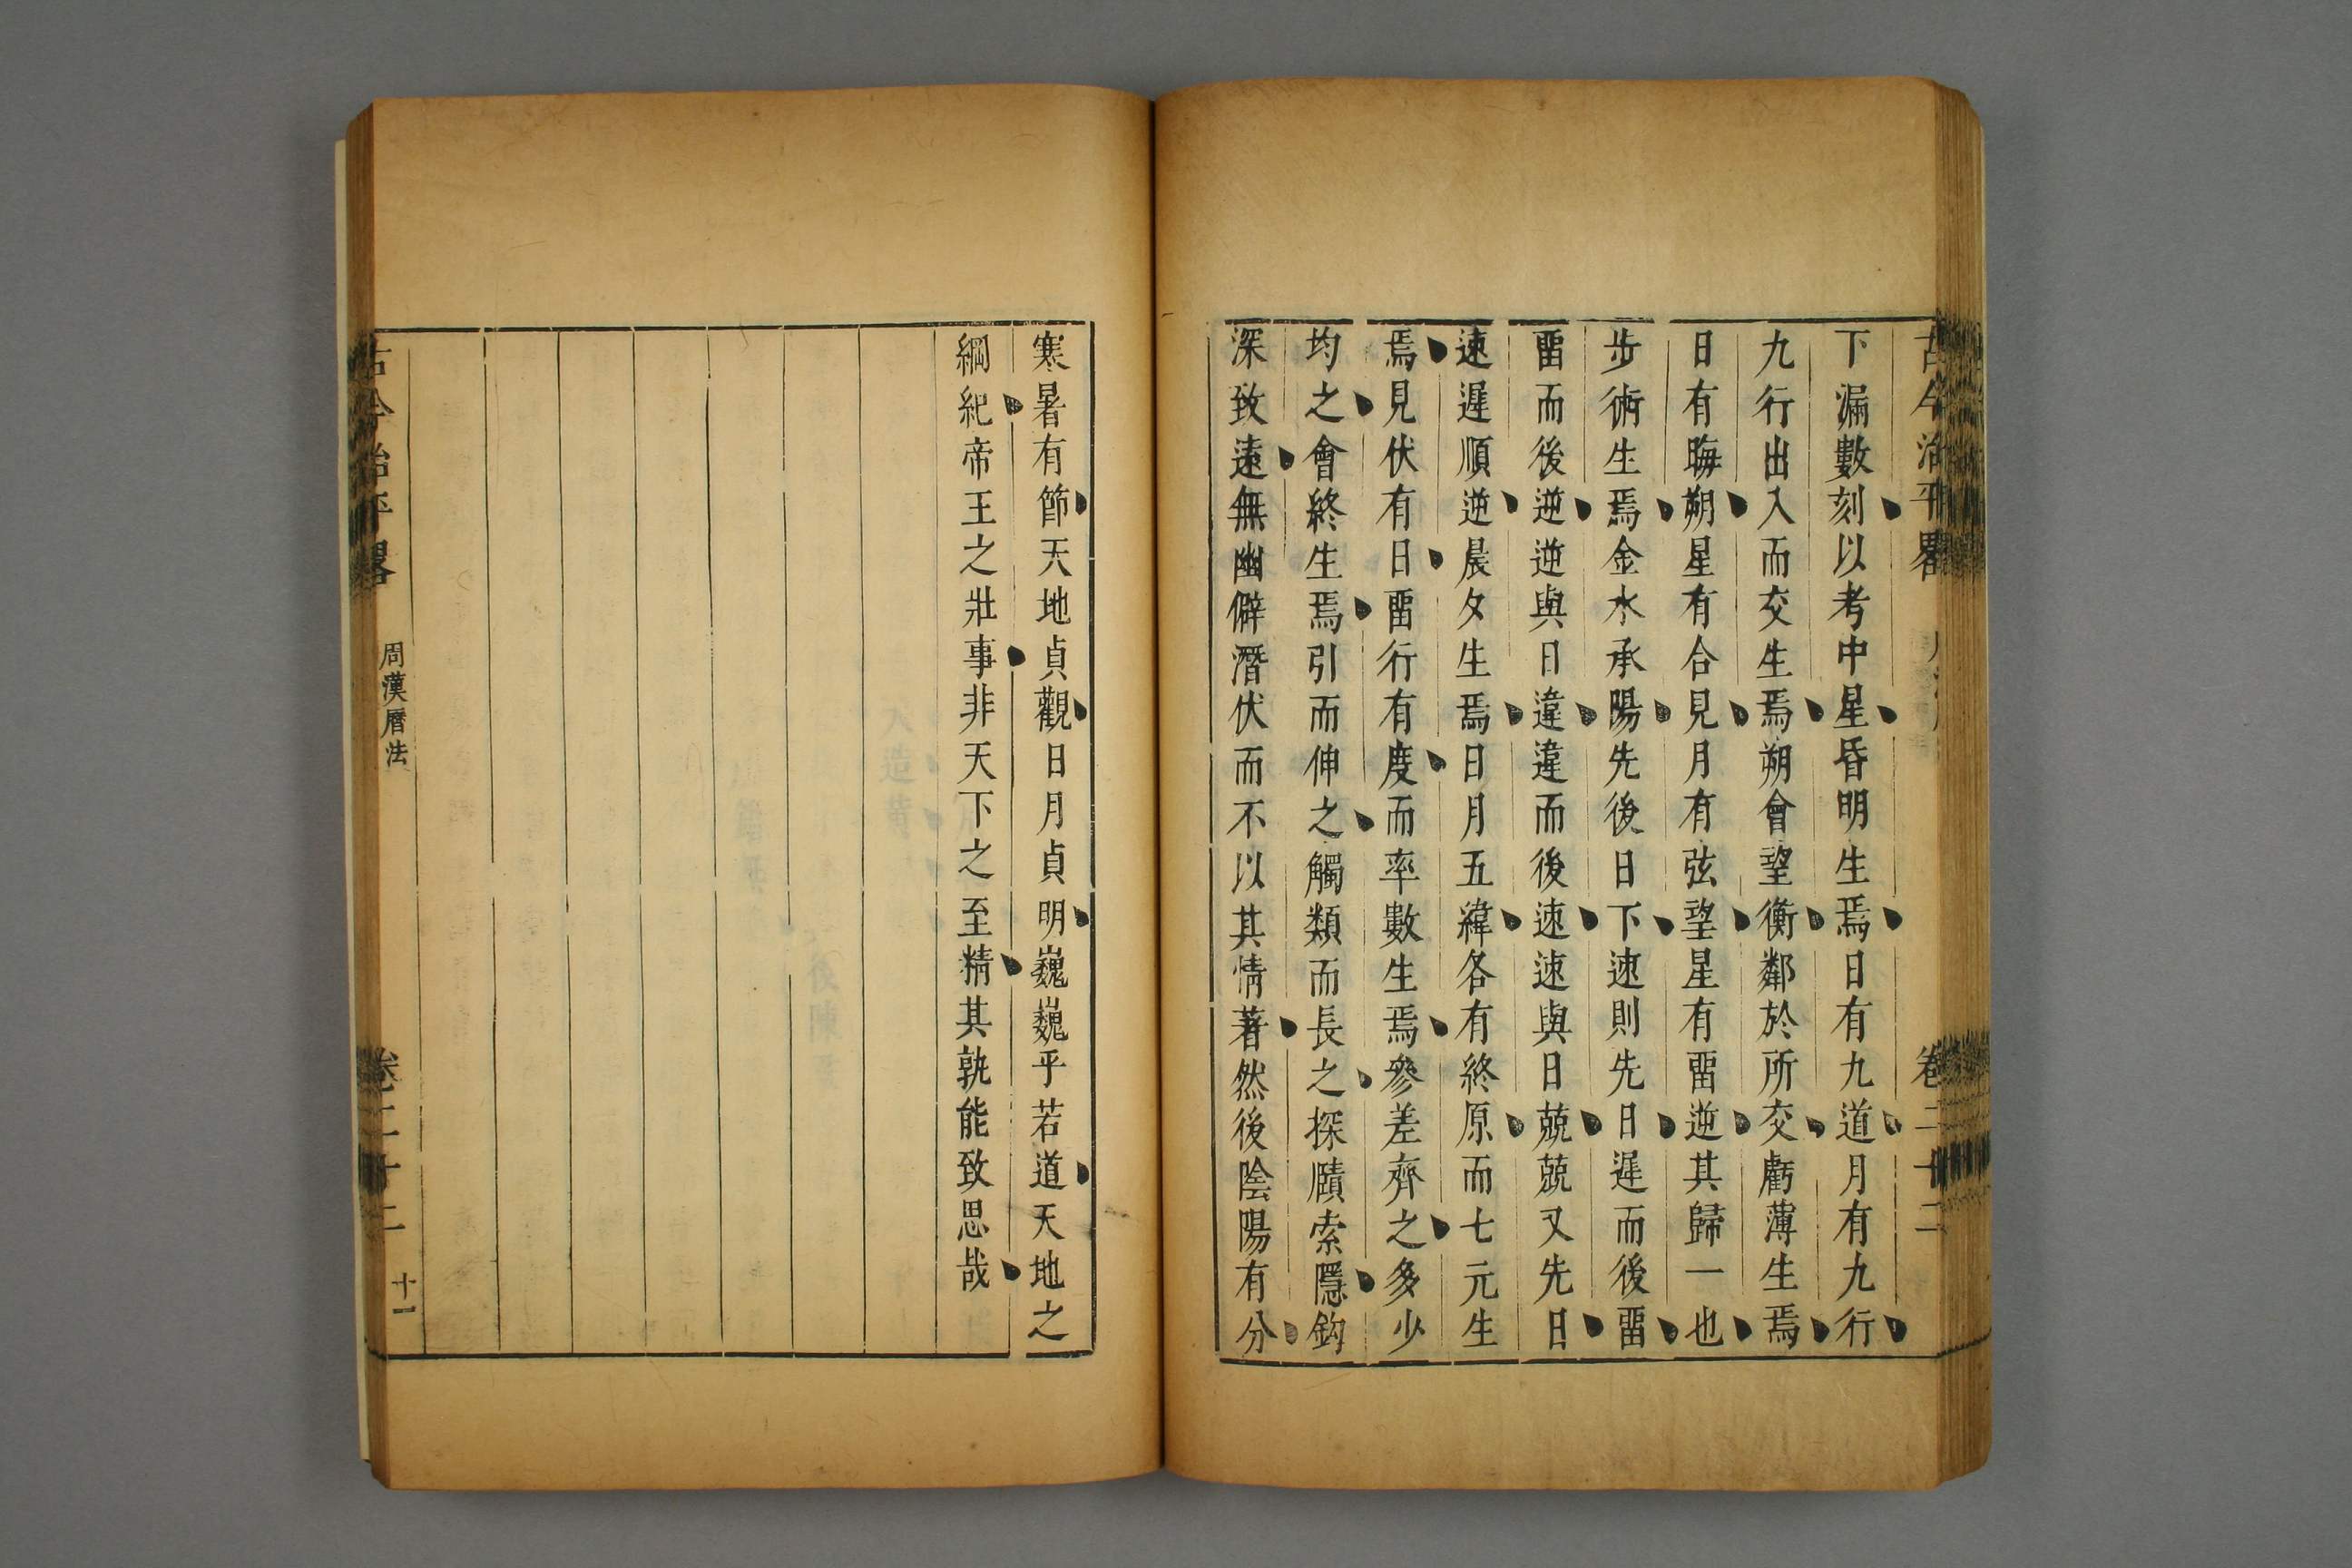 下漏數刻以考中星昏明生焉日有九道月有九行
九行出入而交生焉朔會望衡鄰於所交虧薄生焉
日有晦朔星有合見月有弦望星有畱逆其歸一也
步術生焉金水承陽先後日下速則先日遲而後畱
畱而後逆逆與日違違而後速速與日兢兢又先日
速遲順逆晨夕生焉日月五緯各有終原而七元生
焉見伏有日畱行有度而率數生焉參差齊之多少
均之會終生焉引而伸之觸類而長之探賾索隱鈎
深致遠無幽僻潛伏而不以其情著然後陰陽有分
寒暑有節天地貞觀日月貞明巍巍乎若道天地之
綱紀帝王之壯事非天下之至精其孰能致思哉
古今治平畧
周漢曆法
卷二十二
十一